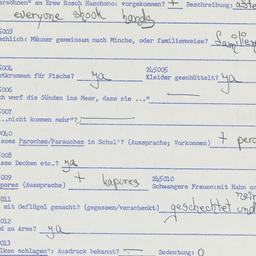 ersöhnen" am Erew Rosch Haschono: vorgekommen? + Beschreibung:
everyone shook hands
5003
echlich: Männer gemeinsam nach Minche, oder familienweise? familien
5004 245005
otkrummen für Fische? ya Kleider geschüttelt? ya
5006
ch werf die Sünden ins Meer, dass sie ..."
5007
...nicht kommen mehr"?
5040
sses Paroches/Parauches in Schul'? (Aussprache; Vorkommen) +
5008
sse Decken etc.? ya
5009 + kapores 245010
pores (Aussprache) Schwangere Frauen:mit Hahn u
5011
mit Geflügel gemacht? (gegessen/verschenkt) geschechtet und
5012
d an Arme? ya
5013
lkes schlagen": Ausdruck bekannt? — Bedeutung: